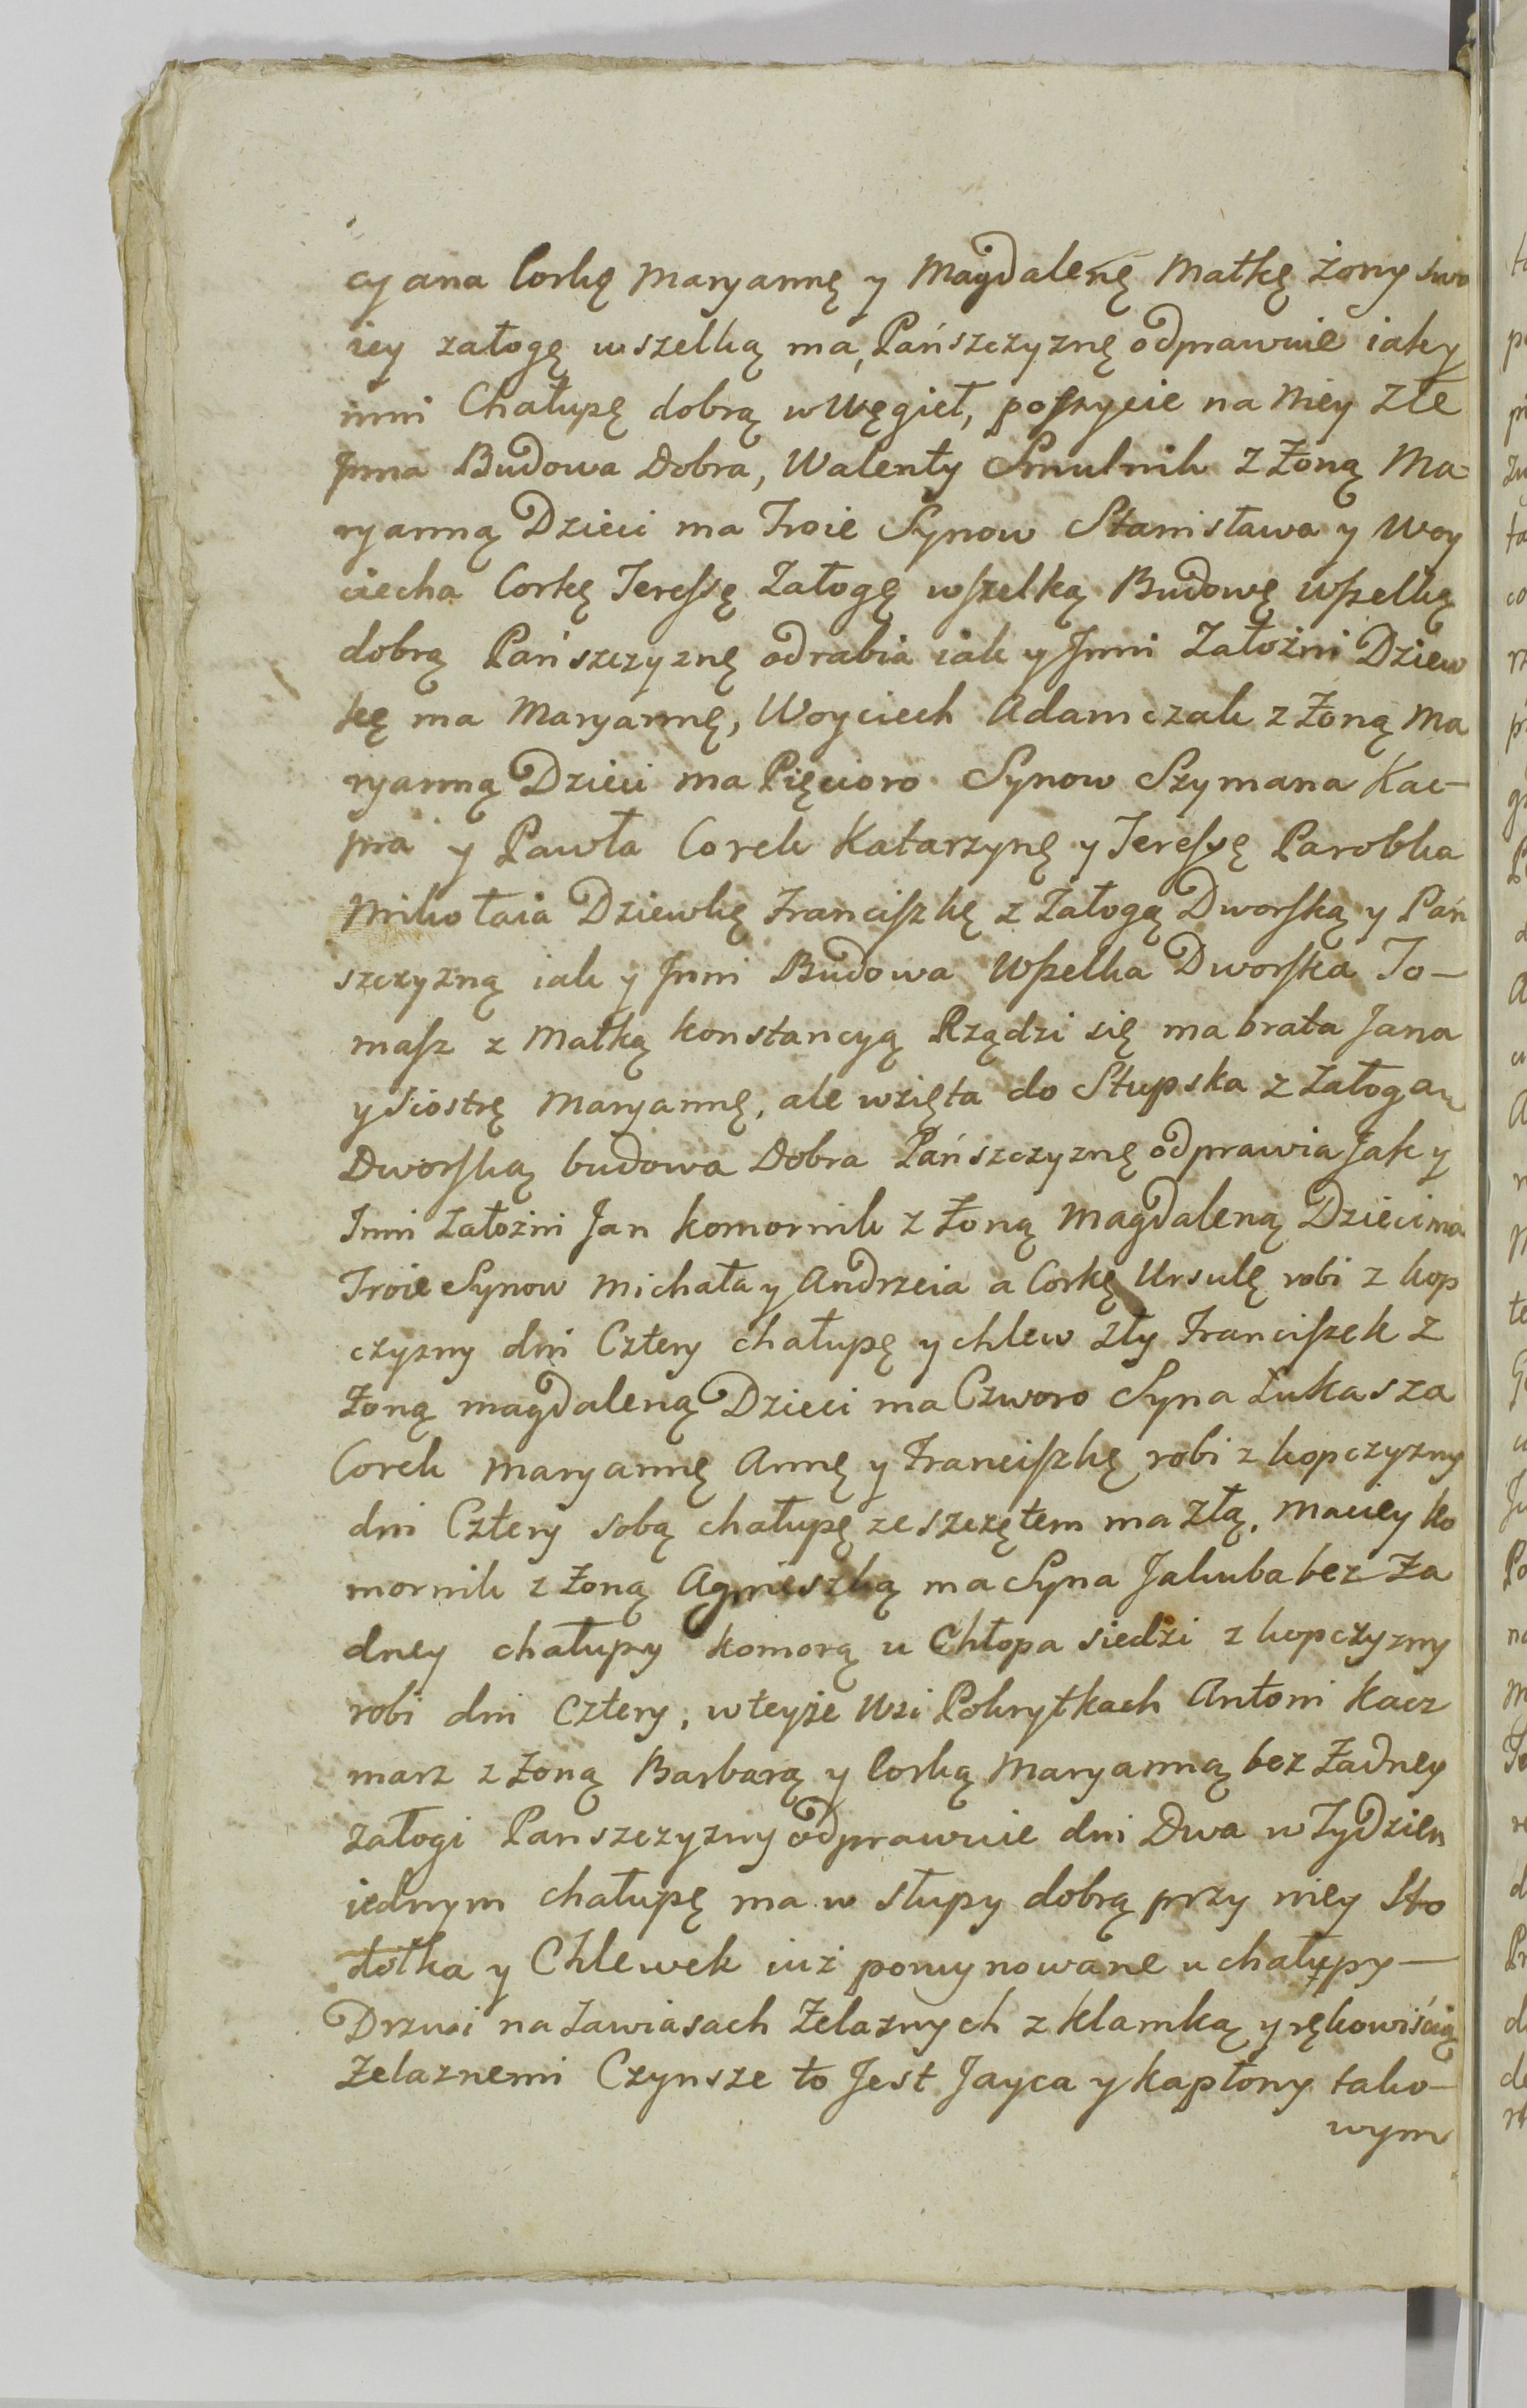 cyana Corkę Maryannę y Magdalenę Matkę żony swo
iey załogę wszelką ma, Pańszczyznę odprawuie iak y
inni Chałupę dobrą w Węgieł, poſzycie na Niey Złe
Jnna Budowa Dobra, Walenty Smulnik z Żoną Ma
ryanną Dzieci ma Troie Synow Stanisława y Woy
ciecha Corkę Tereſsę Załogę wſzelką Budowę wſzelką
dobrą Pańszczyznę odrabia iak y Jnni Założni Dziew
kę ma Maryannę, Woyciech Adamczak z Żoną Ma
ryanną Dzieci ma Pięcioro Synow Szymana Kac-
pra y Pawła Corek Katarzynę y Tereſsę Parobka
Mikołaia Dziewkę Franciſzkę z Załogą Dworſką y Pań
szczyzną iak y Jnni Budowa Wſzelka Dworſka To-
maſz z Matką Konstancyą Rządzi się ma brata Jana
y Siostrę Maryannę, ale wzięta do Słupska z Załogą
Dworſką budowa Dobra Pańszczyznę odprawia Jak y
Jnni Założni Jan Komornik z Żoną Magdaleną Dzieci ma
Troie Synow Michała y Andrzeia a Corkę Ursulę robi z kop
czyzny dni Cztery chałupę y chlew zły Franciſzek z
Żoną Magdaleną Dzieci ma Czworo Syna Łukasza
Corek Maryannę Annę y Franciſzkę robi z kopczyzny
dni Cztery sobą chałupę ze szczętem ma złą, Maciey Ko
mornik z Żoną Agnieszką ma Syna Jakuba bez Ża
dney chałupy komorą u Chłopa siedzi z kopczyzny
robi dni Cztery, w teyże Wsi Pokrytkach Antoni Kacz
marz z Żoną Barbarą y Corką Maryanną bez Żadney
załogi Panszczyzny odprawuie dni Dwa w Tydzien
iednym chałupę ma w słupy dobrą przy niey Sto
dołka y Chlewek iuż porujnowane u chałupy-
Drzwi na Zawiasach Żelaznych z klamką y rękowiścią
Żelaznemi Czynsze to Jest Jayca y kapłony tako-
wym